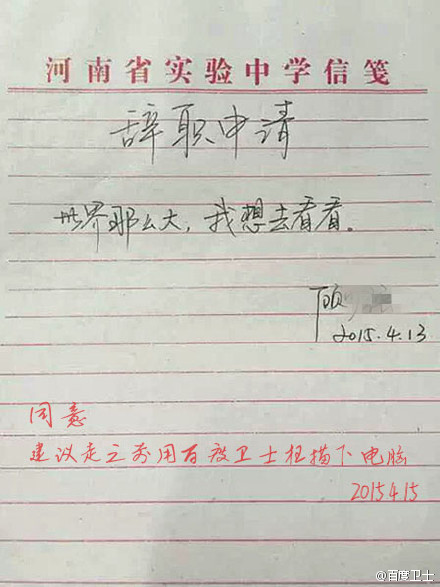 河南省实验中学信笺
辞职申请
世界那么大，我想去看看。
顾
2015.4.13
同意
建议走之前用百度卫士扫描下电脑
2015 4.15
@百度卫士